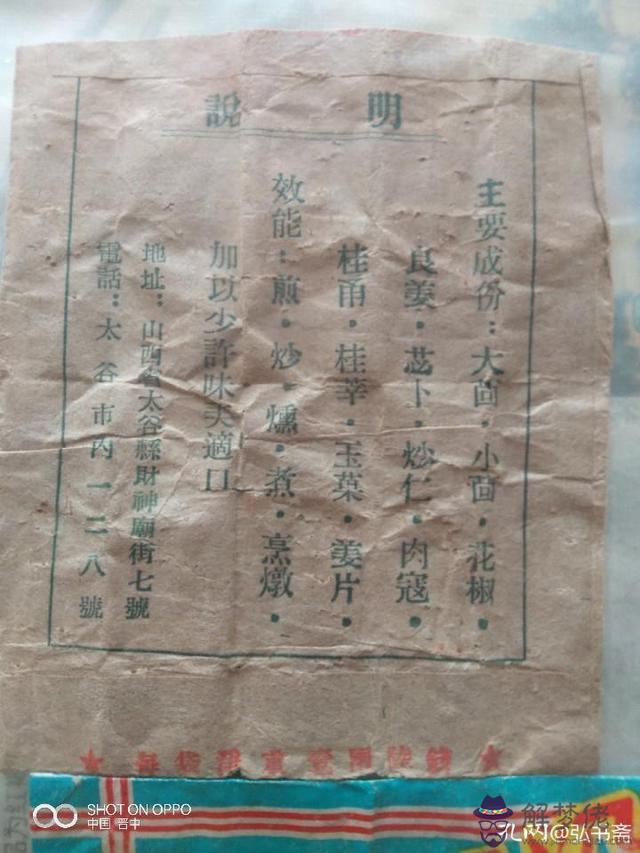 說明
主要成份：大茴·小茴·花椒·
良姜·苾卜·炒仁·肉寇·
桂甬·桂莘·玉菓·姜片·
效能：煎·炒·燻·煮·烹燉·
加以少許味美適口
地址：山西省太谷縣財神廟街七號
電話：太谷市內一二八號
★ 每袋淨重壹兩陸錢 ★
SHOT ON OPPO
中国 晋中
解梦佬
孔网@弘书斋